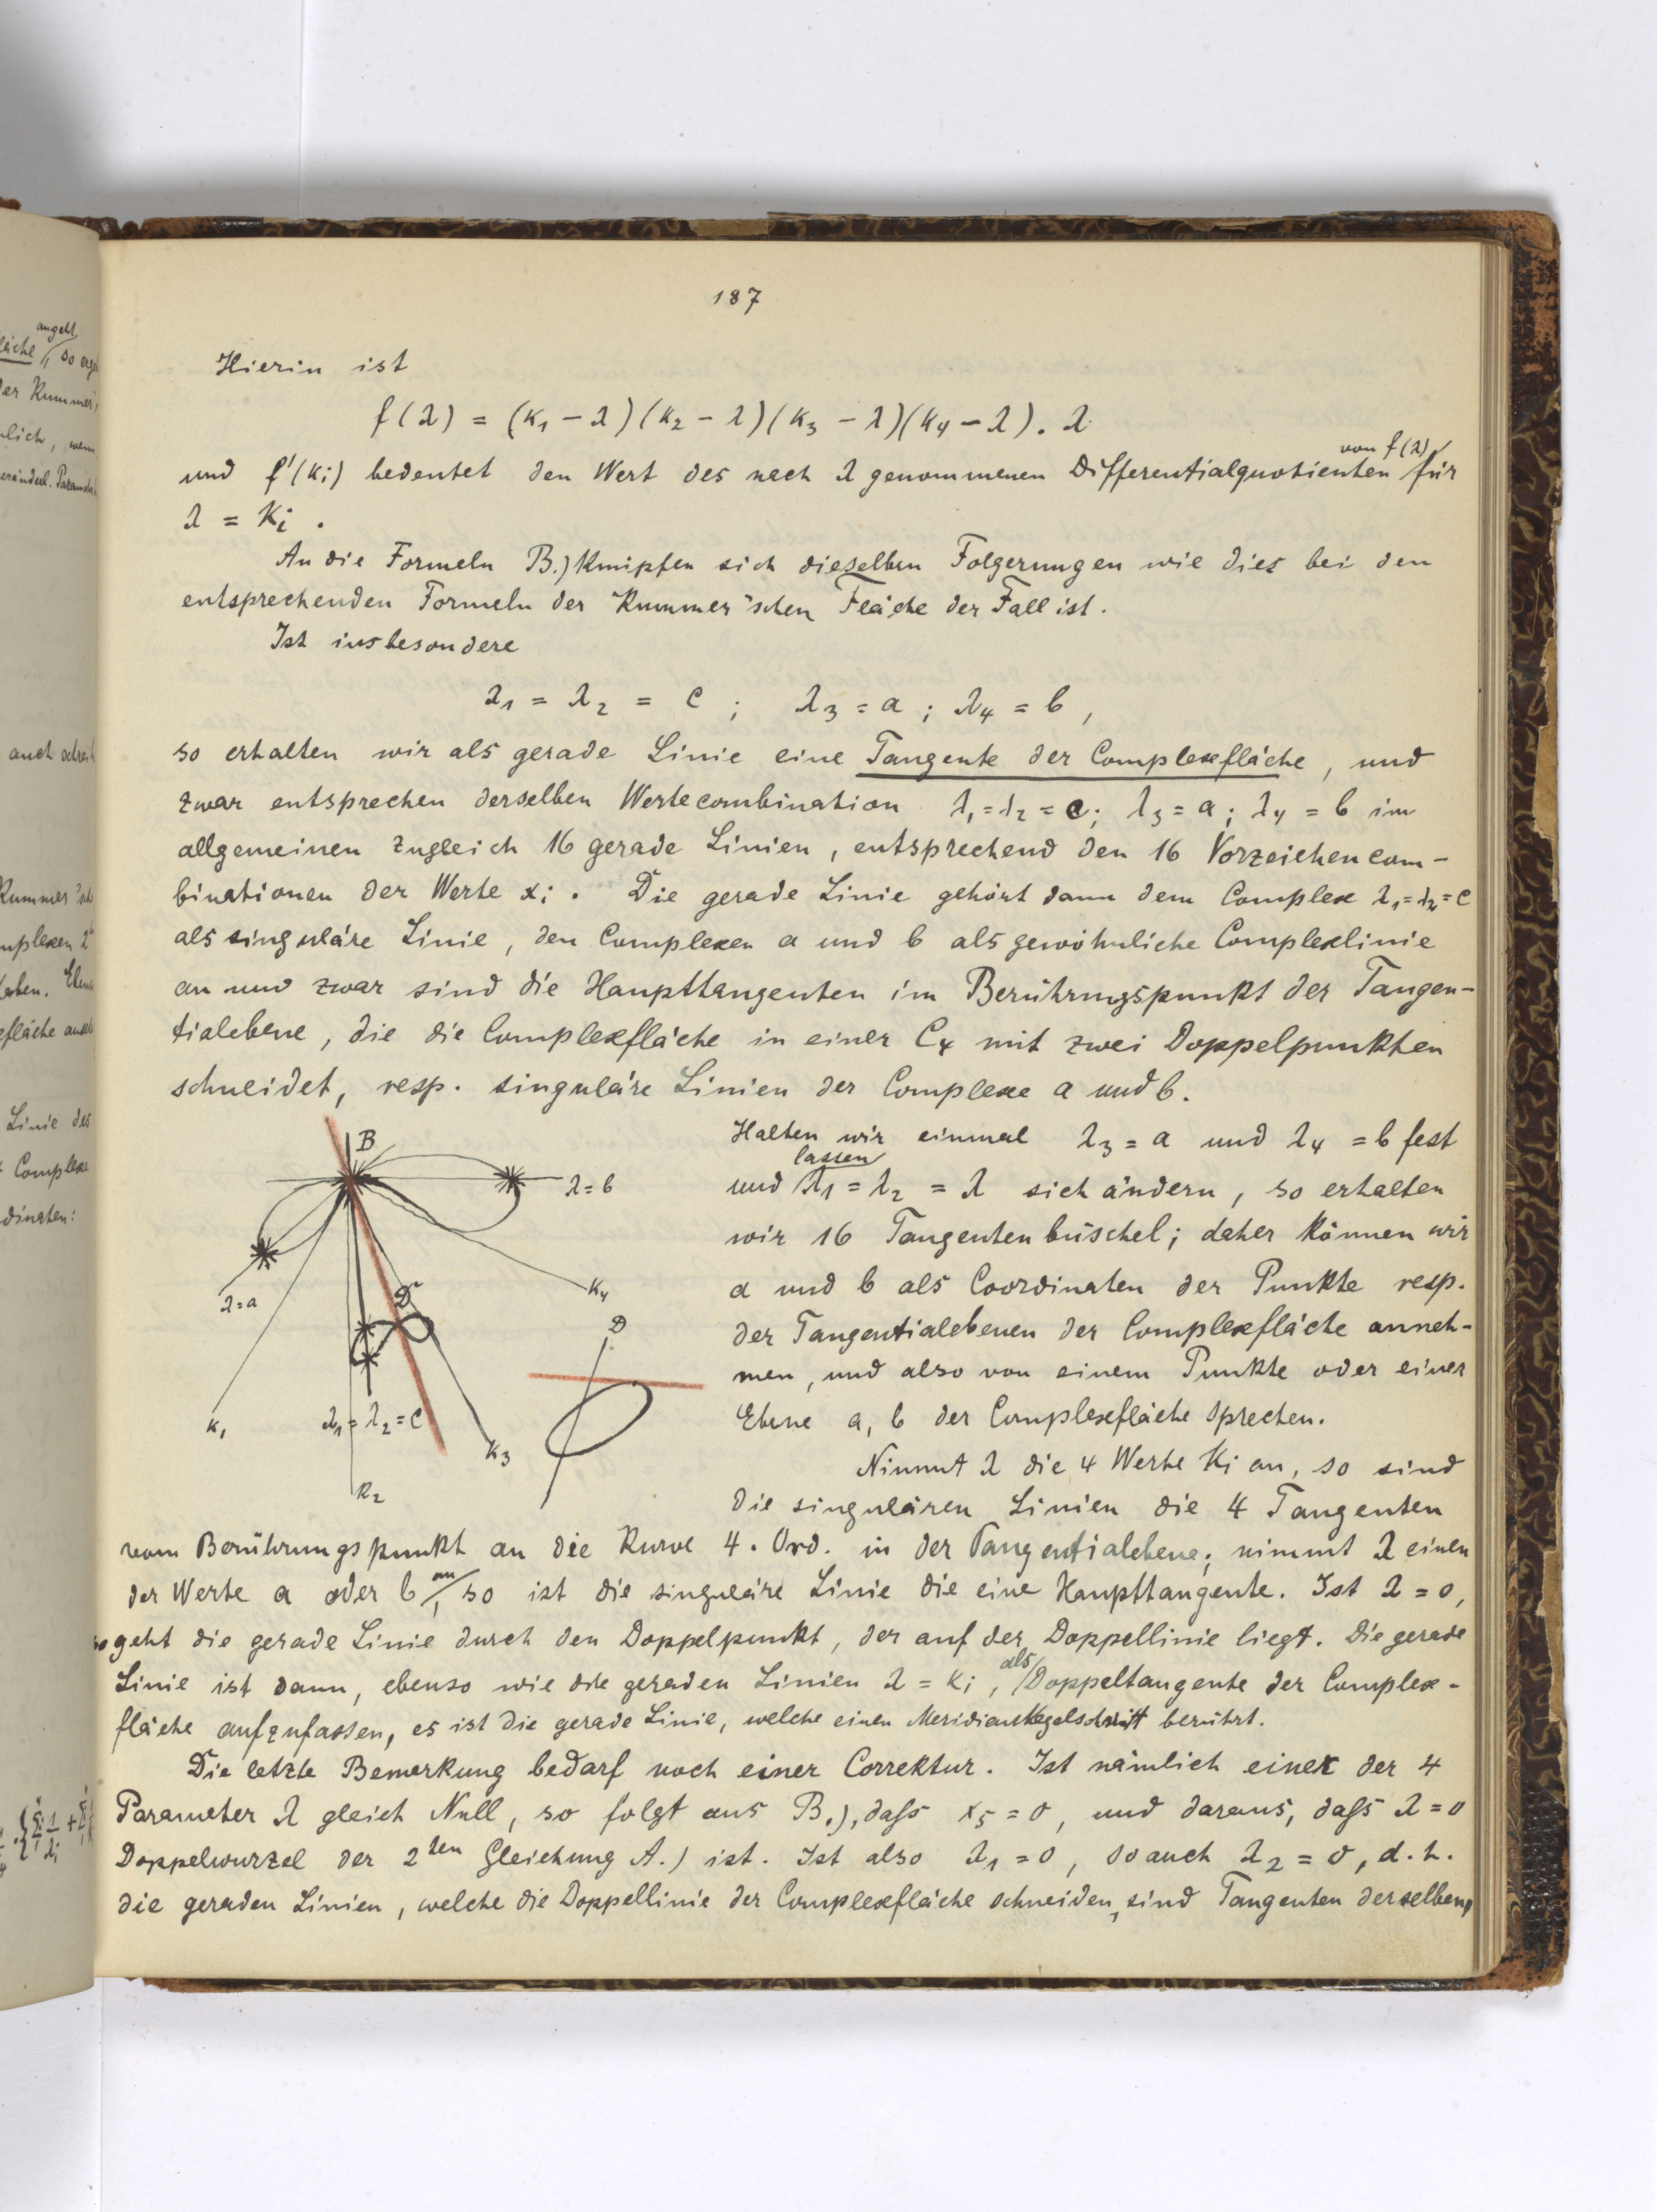 187
Hierin ist
f(λ) = (k₁ - λ)(k₂ - λ)(k₃ - λ)(k₄ - λ). λ
von f(λ)
und f'(ki) bedeutet den Wert des nach λ genommenen Differentialquotienten für
λ = Ki .
An die Formeln B.) knüpfen sich dieselben Folgerungen wie dies bei den
entsprechenden Formeln der Kummer'schen Fläche der Fall ist.
Ist insbesondere
λ₁ = λ₂ = c ; λ₃ = a ; λ₄ = b ,
so erhalten wir als gerade Linie eine Tangente der Complexfläche, und
zwar entsprechen derselben Wertecombination λ₁ = λ₂ = c; λ₃ = a; λ₄ = b im
allgemeinen zugleich 16 gerade Linien, entsprechend den 16 Vorzeichencom-
binationen der Werte xi . Die gerade Linie gehört dann dem Complex λ₁=λ₂=c
als singuläre Linie, den Complexen a und b als gewöhnliche Complexlinie
an und zwar sind die Haupttangenten im Berührungspunkt der Tangen-
tialebene, die die Complexfläche in einer C₄ mit zwei Doppelpunkten
schneidet, resp. singuläre Linien der Complexe a und b.
Halten wir einmal λ₃ = a und λ₄ = b fest
lassen
und λ₁ = λ₂ = λ sich ändern, so erhalten
wir 16 Tangentenbüschel; daher können wir
a und b als Coordinaten der Punkte resp.
der Tangentialebenen der Complexfläche anneh-
men, und also von einem Punkte oder einer
Ebene a, b der Complexfläche sprechen.
Nimmt λ die 4 Werte Ki an, so sind
die singulären Linien die 4 Tangenten
B
λ=b
λ=a
K₄
D
D
K₁
λ₁ = λ₂ = c
K₃
K₂
vom Berührungspunkt an die Kurve 4. Ord. in der Tangentialebene; nimmt λ einen
der Werte a oder b an, so ist die singuläre Linie die eine Haupttangente. Ist λ = 0,
so geht die gerade Linie durch den Doppelpunkt, der auf der Doppellinie liegt. Die gerade
Linie ist dann, ebenso wie die geraden Linien λ = ki, als Doppeltangente der Complex-
fläche aufzufassen, es ist die gerade Linie, welche einen Meridiankegelschnitt berührt.
Die letzte Bemerkung bedarf noch einer Correktur. Ist nämlich einer der 4
Parameter λ gleich Null, so folgt aus B.), daſs x₅ = 0, und daraus, daſs λ = 0
Doppelwurzel der 2ten Gleichung A.) ist. Ist also λ₁ = 0, so auch λ₂ = 0, d. h.
die geraden Linien, welche die Doppellinie der Complexfläche schneiden, sind Tangenten derselben,